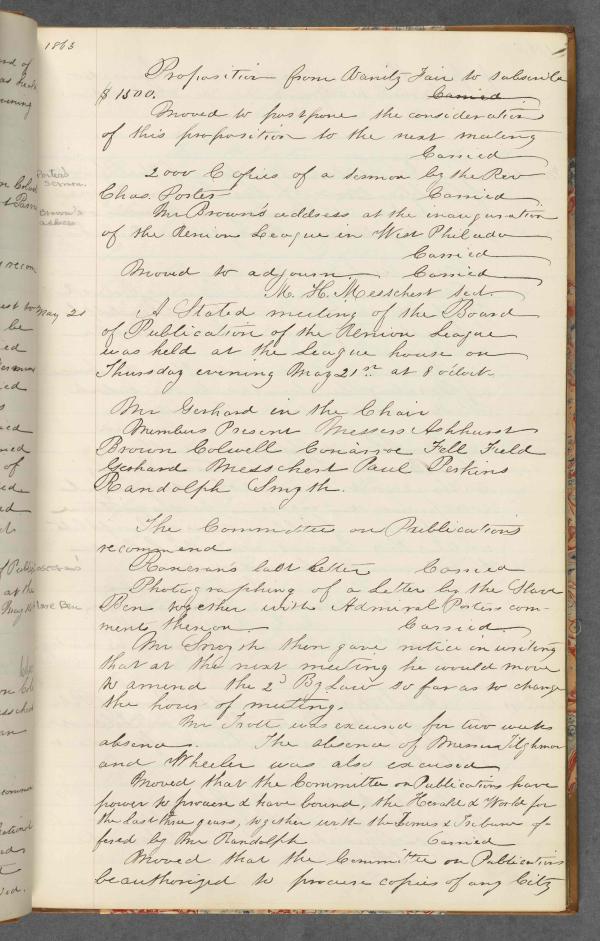 1863
Proposition from Vanity Fair to subscribe
$1500. Carried
Moved to postpone the consideration
of this proposition to the next meeting
Carried
2000 Copies of a sermon by the Rev
Chas. Porter Carried
Porter's
sermon.
Mr Brown's address at the inauguration
of the Union League in West Philada
Brown's
address
Carried
Moved to adjourn. Carried
M. H. Messchert sec.
May 21
A Stated meeting of the Board
of Publication of the Union League
was held at the League house on
Thursday evening May 21st at 8 o'clock.
Mr Gerhard in the Chair
Members Present Messrs Ashhurst
Brown Colwell Conarroe Fell Field
Gerhard Messchert Paul Perkins
Randolph Smyth.
The Committee on Publications
recommend
last letter Carried
Photographing of a Letter by the Slave
Ben together with Admiral Porters com-
ments thereon. Carried.
Slave Ben
Mr Smyth then gave notice in writing
that at the next meeting he would move
to amend the 2d By Law so far as to change
the hour of meeting.
Mr Trott was excused for two weeks
absence. The absence of Messrs Tilghman
and Wheeler was also excused
Moved that the Committee on Publications have
power to procure & have bound, the Herald & World for
the last three years, together with the Times & Tribune of-
fered by Mr Randolph Carried
Moved that the Committee on Publications
be authorized to procure copies of any City